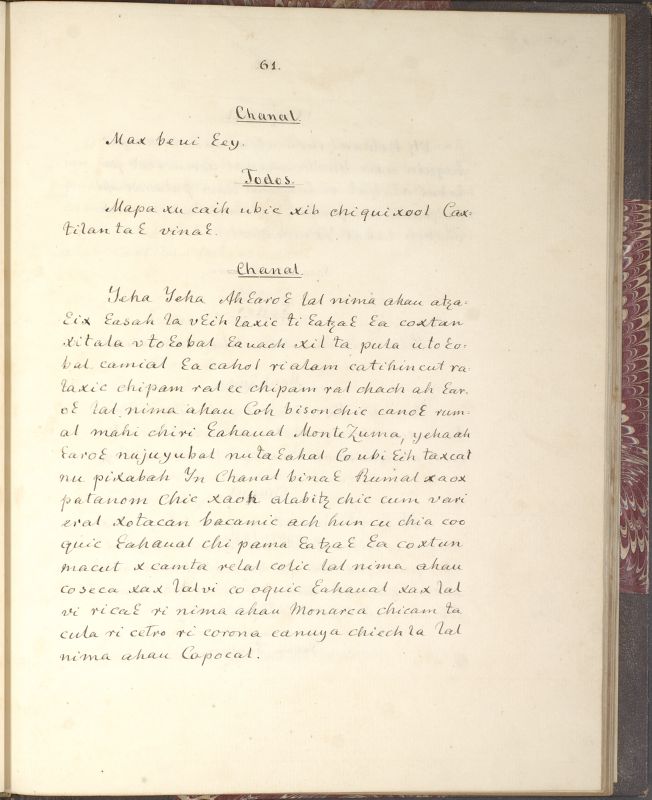 61.
Chanal.
Max beui Ɛey.
Todos.
Mapa xu caih ubic xib chiquixool Cax=
tilan taƐ vinaƐ.
Chanal.
Yeha Yeha AhƐaroƐ lal nima ahau atza=
Ɛix Ɛasah la vƐih laxic ti ƐatzaƐ Ɛa coxtun
xitala vtoƐobal Ɛauach xil ta pula utoƐo=
bal camial Ɛa cahol rialam catihincut ra=
laxic chipam ral ec chipam ral chach ah Ɛar=
oƐ lal nima ahau Coh bisonchic canoƐ rum=
al mahi chiri Ɛahaual MonteZuma, yehaah
ƐaroƐ nujuyubal nutaƐahal Co ubi Ɛih taxcat
nu pixabah Yn Chanal binaƐ Rumal xaox
patanom chic xaok alabitz chic cum vari
eral xotacan bacamic ach hun cu chia coo
quic Ɛahaual chi pama ƐatzaƐ Ɛa coxtun
macut x camta relal colic lal nima ahau
coseca xax lalvi co oquic Ɛahaual xax lal
vi ricaƐ ri nima ahau Monarca chicam ta
cula ri cetro ri corona canuya chiech la lal
nima ahau Capocal.